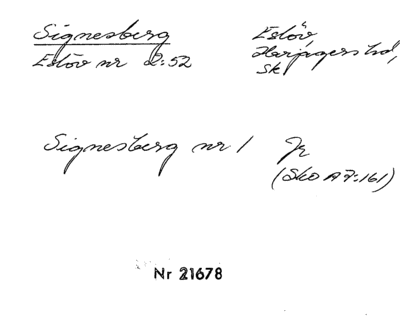 Signesberg
Eslöv nr 2:52
Eslöv,
Harjagers hd,
Sk
Signesberg nr 1 Jr
(Sko A7:161)
Nr 21678